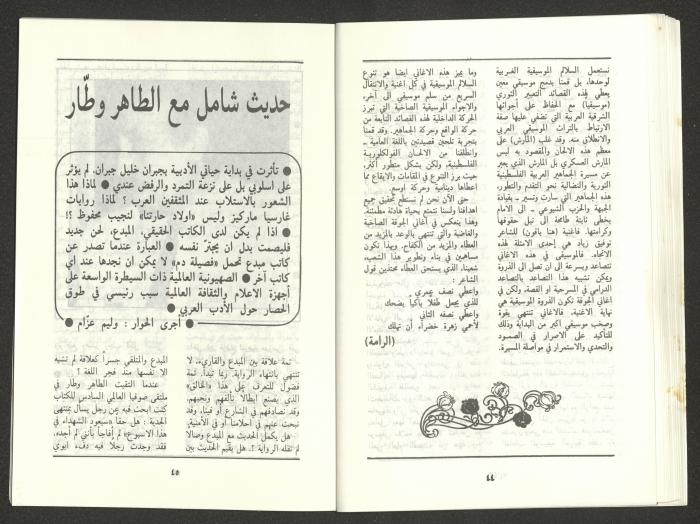 نستعمل السلالم الموسيقية الغربية
لوحدها، بل قمنا بدمج موسيقي معين
يعطي لهذه القصائد التعبير الثوري
(موسيقيا) مع الحفاظ على أجوائها
الشرقية العربية التي تضفي عليها صفة
الارتباط بالتراث الموسيقي العربي
والانطلاق منه. وقد غلب (المارش) على
معظم هذه الالحان والمقصود به ليس
المارش العسكري بل المارش الذي يعبر
عن مسيرة الجماهير العربية الفلسطينية
الثورية والنضالية نحو التقدم والتطور،
هذه الجماهير التي سارت وتسير بقيادة
الجبهة والحزب الشيوعي ـ الى الامام
بخطى ثابتة طامحة الى نيل حقوقها
وكرامتها. فاغنية (هنا باقون) للشاعر
توفيق زياد هي إحدى الامثلة لهذه
الاتجاه. فالموسيقى في هذه الاغاني
تتصاعد وبسرعة الى ان تصل الى الذروة
ويمكن تشبيه هذا التصاعد بالتصاعد
الدرامي في المسرحية او القصة، ولكن في
اغاني الجوقة تكون الذروة الموسيقية هي
نهاية الاغنية. فالاغاني تنتهي بقوة
وصخب موسيقي اكبر من البداية وذلك
للتأكيد على الاصرار في الصمود
والتحدي والاستمرار في مواصلة المسيرة.
وما يميز هذه الاغاني ايضا هو تنوع
السلالم الموسيقية في كل اغنية والانتقال
السريع من سلم موسيقي الى آخر،
والاجواء الموسيقية الصاخبة التي تبرز
الحركة الداخلية لهذه القصائد النابعة من
حركة الواقع وحركة الجماهير. وقد قمنا
بتجربة تلحين قصيدتين باللغة العامية ـ
وانطلقنا من الالحان الفولكلورية
الفلسطينية، ولكن بشكل متطور أكثر،
حيث برز التنوع في المقامات والايقاع مما
اعطاها دينامية وحركة اوسع.
حتى الآن نحن لم نستطع تحقيق جميع
اهدافنا ولسنا نتمتع بحياة هادئة مطمئنة.
وهذا ينعكس في أغاني الجوقة الصاخبة
والغاضبة والتي تنتهي بالوعد بالمزيد من
العطاء والمزيد من الكفاح. وبهذا نكون
مساهمين في بناء وتطوير هذا الشعب،
شعبنا، الذي يستحق العطاء محتذين قول
الشاعر :
واعطي نصف عمري
للذي يجعل طفلا باكيا يضحك
واعطي نصفه الثاني
لأحمي زهرة خضراء أن تهلك
(الرامة)
٤٤
حديث شامل مع الطاهر وطّار
● تأثرت في بداية حياتي الأدبية بجبران خليل جبران. لم يؤثر
على اسلوبي بل على نزعة التمرد والرفض عندي ● لماذا هذا
الشعور بالاستلاب عند المثقفين العرب ؟ لماذا روايات
غارسيا ماركيز وليس «اولاد حارتنا» لنجيب محفوظ ؟!
● اذا لم يكن لدى الكاتب الحقيقي، المبدع، لحن جديد
فليصمت بدل ان يجترّ نفسه ● العبارة عندما تصدر عن
كاتب مبدع تحمل «فصيلة دم» لا يمكن ان نجدها عند أي
كاتب آخر ● الصهيونية العالمية ذات السيطرة الواسعة على
أجهزة الاعلام والثقافة العالمية سبب رئيسي في طوق
الحصار حول الأدب العربي ●
● أجرى الحوار : وليم عزّام ●
ثمة علاقة بين المبدع والقارىء.. لا
تنتهي بانتهاء الرواية. ربما تبدأ. ثمة
فضول للتعرف على هذا «الخالق»
الذي يصنع ابطالا نألفهم ونحبهم.
وقد نصادفهم في الشارع أو فينا. وقد
نبحث عنهم في احلامنا أو في الأمنية.
هل يكمل الحديث مع المبدع وصالا
لم تقله الرواية ؟. هل يقيم الحديث بين
المبدع والمتلقي جسراً كعلاقة لم تشبه
الا نفسها منذ فجر اللغة ؟
عندما التقيت الطاهر وطار في
ملتقى صوفيا العالمي السادس للكتاب
كنت أبحث فيه عن رجل يسأل بمنتهى
الجدية : هل حقاً «سيعود الشهداء في
هذا الاسبوع» لم أفاجأ بأنني لم أجده.
فقد وجدت رجلا فيه دفء ابوي
٤٥